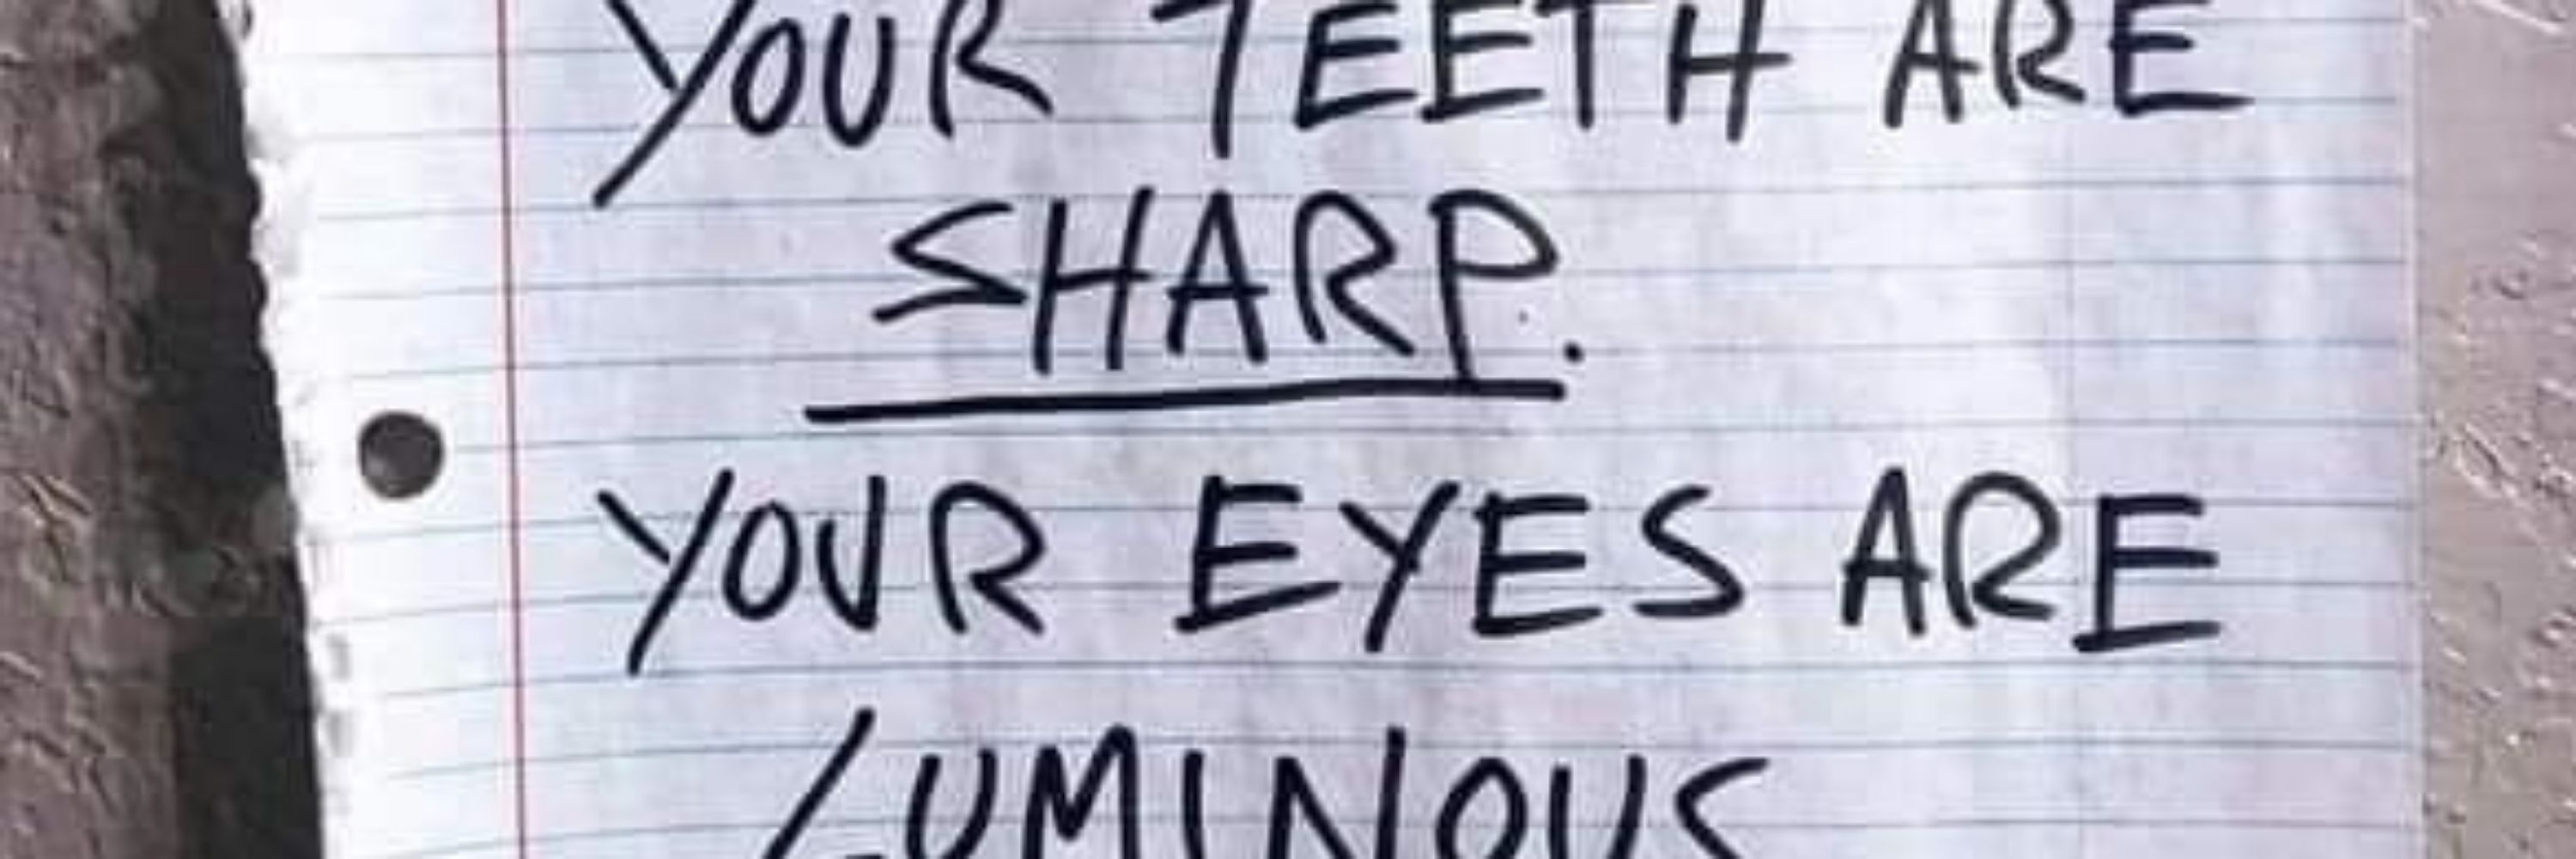 YOUR TEETH ARE
SHARP.
YOUR EYES ARE
LUMINOUS